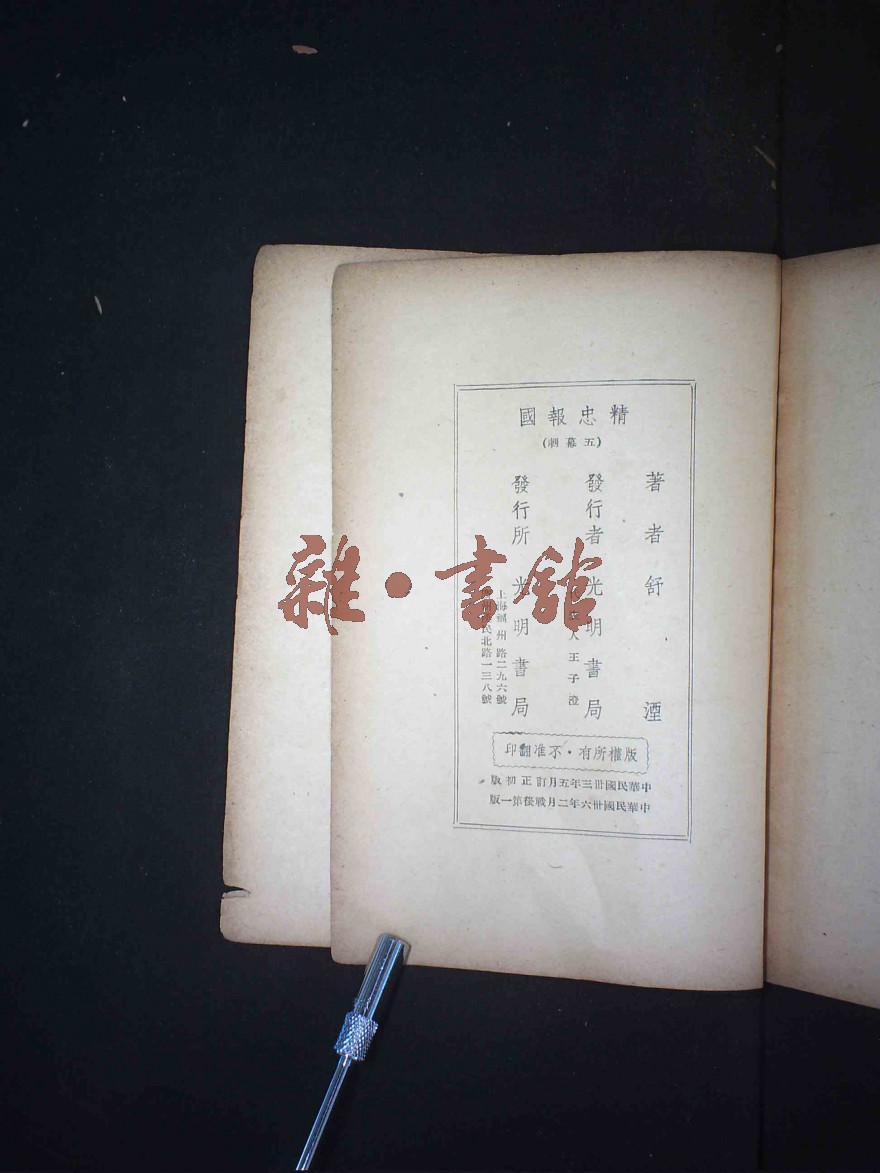 精忠報國
(五幕劇)
著者 舒湮
發行者 光明書局
人 王子澄
發行所 光明書局
上海福州路二九六號
民北路一三八號
版權所有·不准翻印
中華民國卅三年五月訂正初版
中華民國卅六年二月戰後第一版
雜·書館